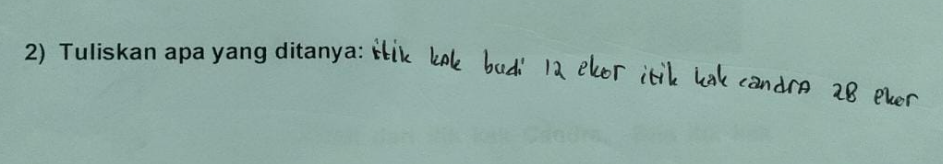 2) Tuliskan apa yang ditanya: itik kak budi 12 ekor itik kak candra 28 ekor